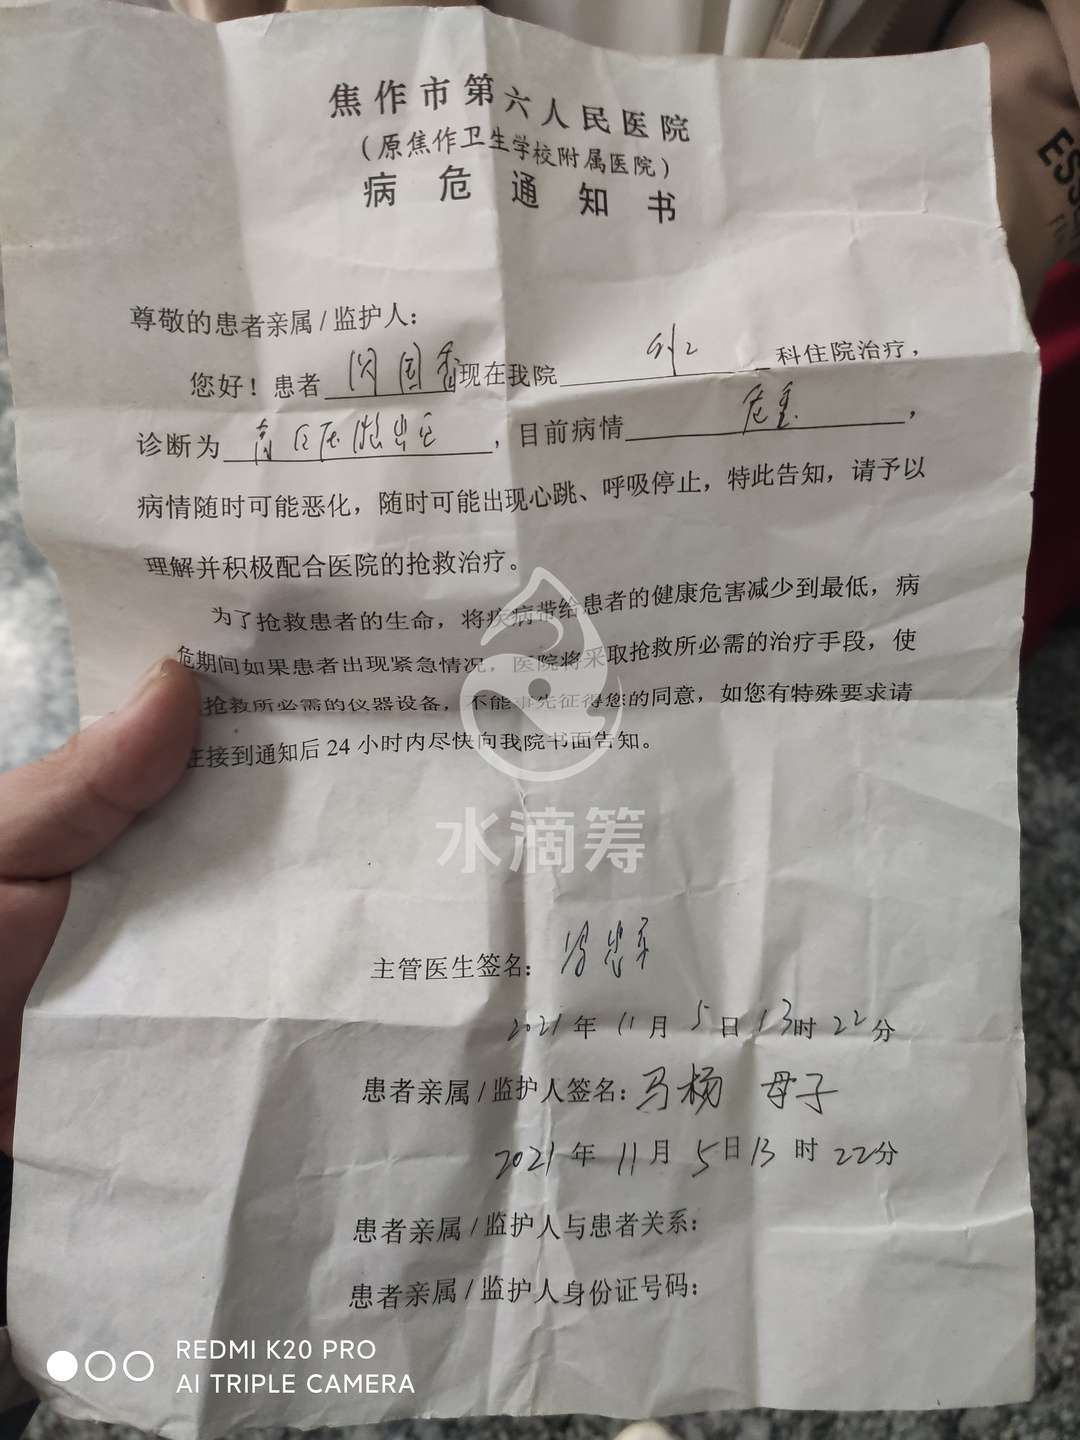 焦作市第六人民医院
（原焦作卫生学校附属医院）
病危通知书
尊敬的患者亲属/监护人：
您好！患者 闪国 现在我院 外2 科住院治疗，
诊断为 高血压脑出血，目前病情 危重，
病情随时可能恶化，随时可能出现心跳、呼吸停止，特此告知，请予以
理解并积极配合医院的抢救治疗。
为了抢救患者的生命，将疾病带给患者的健康危害减少到最低，病
危期间如果患者出现紧急情况，医院将采取抢救所必需的治疗手段，使
抢救所必需的仪器设备，不能事先征得您的同意，如您有特殊要求请
在接到通知后24小时内尽快向我院书面告知。
水滴筹
主管医生签名：
2021年11月5日13时22分
患者亲属/监护人签名：马杨 母子
2021年11月5日13时22分
患者亲属/监护人与患者关系：
患者亲属/监护人身份证号码：
REDMI K20 PRO
AI TRIPLE CAMERA